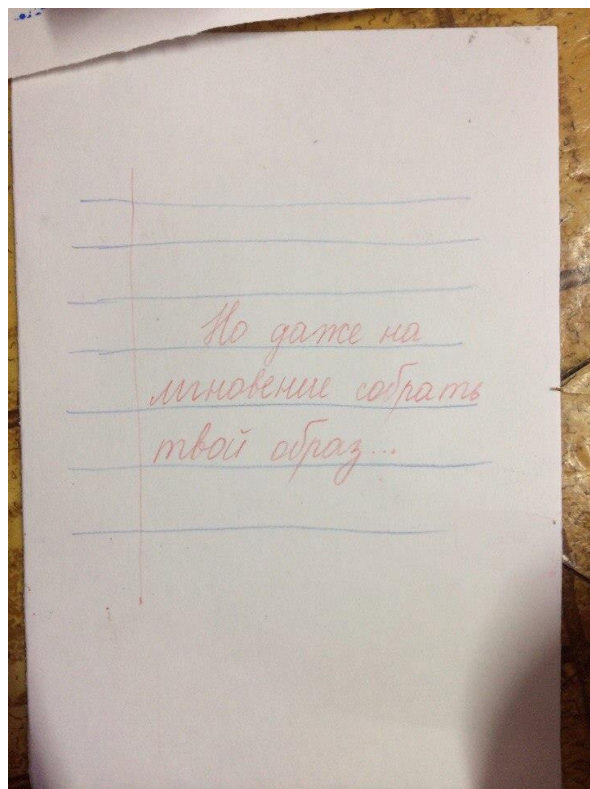 Но даже на
мгновение собрать
твой образ...